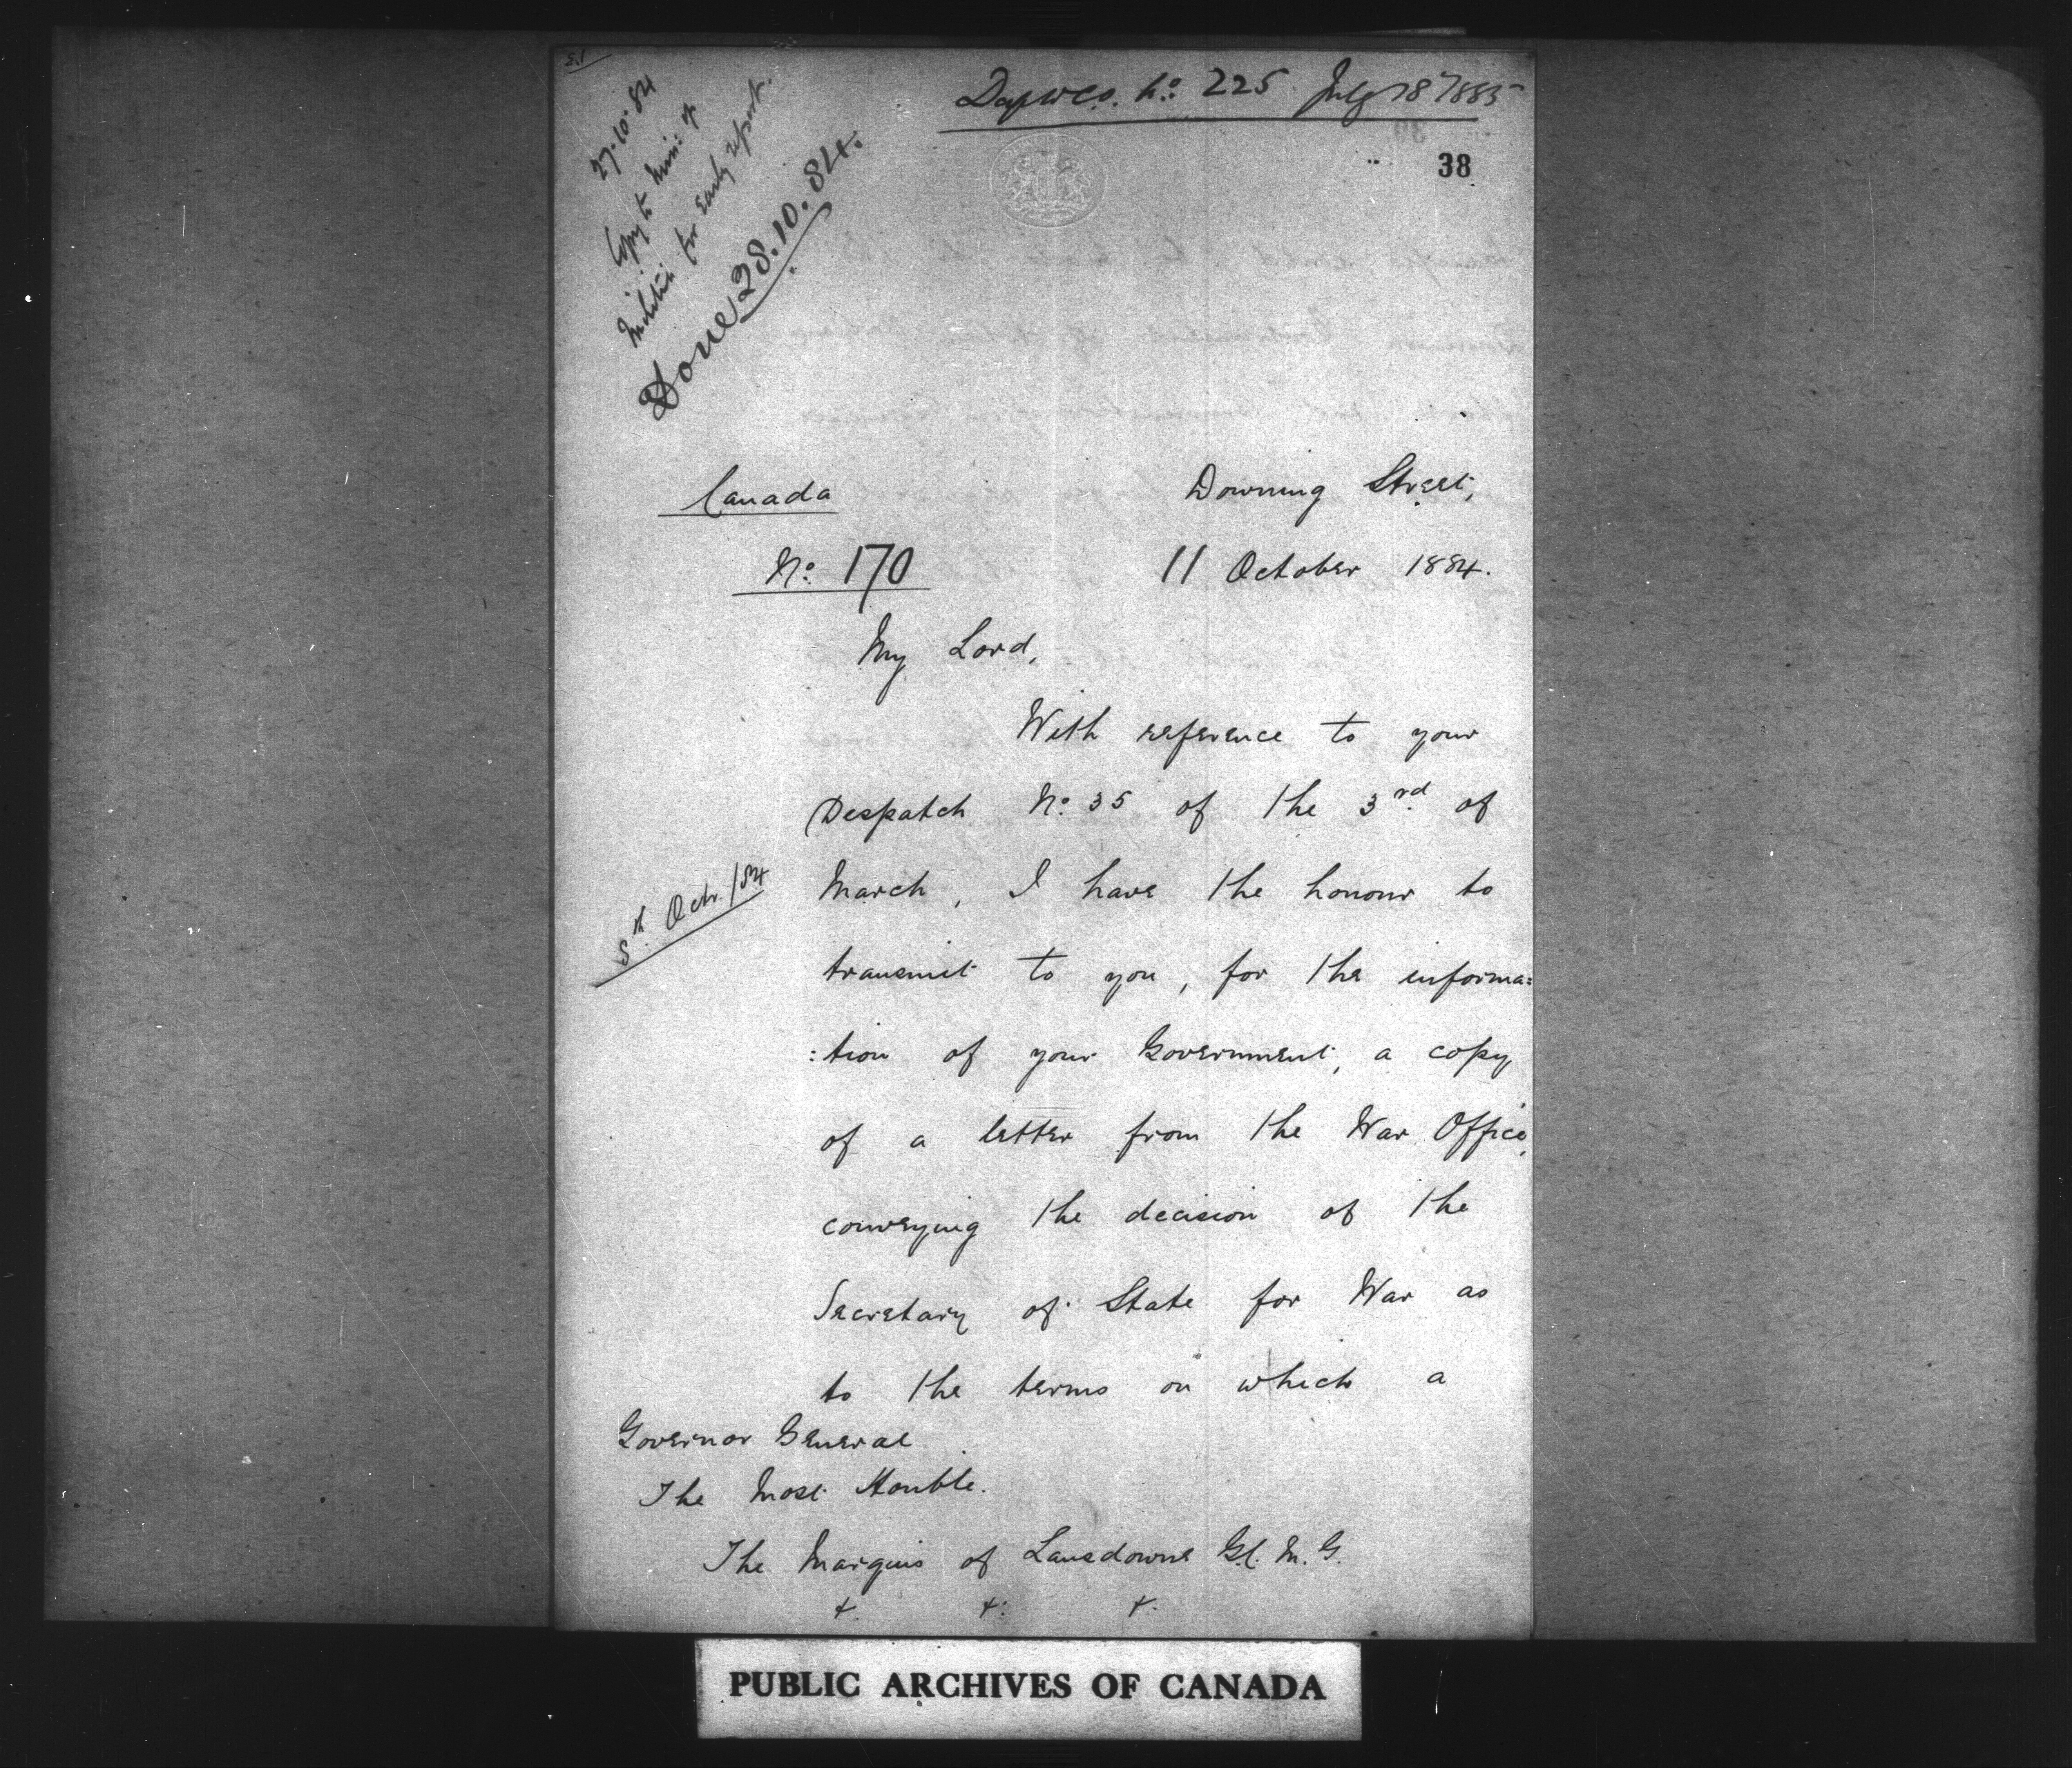 27.10.84
Copy to Min: of
Militia for early report.
Done 28.10.84.
No. 225 July 18 1885
38
Canada
No. 170
Downing Street,
11 October 1884.
My Lord,
With reference to your
Despatch No. 35 of the 3rd of
March, I have the honour to
5th Octr./84
transmit to you, for the informa=
:tion of your Government, a copy
of a letter from the War Office,
conveying the decision of the
Secretary of State for War as
to the terms on which a
Governor General
The Most Honble.
The Marquis of Lansdowne G.C.M.G.
&. &: &.
PUBLIC ARCHIVES OF CANADA